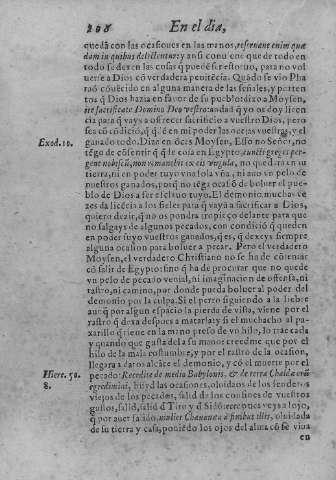 208 En el dia,
quedã con las ocasiones en las manos, reseruane enim quæ
dam in quibus delectentur: y ansi conuiene que de todo en
todo se dexen las cosas q̃ puedẽ ser estoruo, para no vol
uerse a Dios cõ verdadera penitẽcia. Quãdo se vio Pha
raõ cõuẽcido en alguna manera de las señales, y porten
tos q̃ Dios hazia en fauor de su pueblo: dixo a Moysen,
ite sacrificate Domino Deo vestro: andad q̃ yo os doy licen
cia para q̃ vays a ofrecer sacrificio a vuestro Dios, pero
sea cõ condiciõ, q̃ q̃dẽ en mi poder las ouejas vuestras, y el
Exod. 10. ganado todo. Dize entõces Moysen, Esso no Señor, no
tẽgo de cõsentir q̃ q̃de cosa en Egypto: cuncti greges per
gent nobiscũ, non remanebit ex eis vngula, no quedara en su
tierra, ni en poder tuyo vna sola vña, ni aun vn pelo de
nuestros ganados, porq̃ no tẽga ocasiõ de boluer el pue
blo de Dios a ser esclauo tuyo. El demonio muchas ve
zes da licẽcia a los fieles para q̃ vayã a sacrificar a Dios,
quiero dezir, q̃ no os pondra tropieço delante para que
no salgays de algunos pecados, con condiciõ q̃ queden
en poder suyo vuestros ganados, q̃ es, q̃ dexeys siempre
alguna ocasion para boluer a pecar. Pero el verdadero
Moysen, el verdadero Christiano no se ha de cõtentar
cõ salir de Egypto: sino q̃ ha de procurar que no quede
vn pelo de pecado venial, ni imaginacion de ofensa, ni
rastro, ni camino, por donde pueda boluer al poder del
demonio por la culpa. Si el perro siguiendo a la liebre
aunq̃ por algun espacio la pierda de vista, viene por el
rastro q̃ dexa despues a matarla: y si el muchacho al pa-
xarillo q̃ tiene en la mano preso de vn hilo, lo trae cada
y quando que gusta del a su mano: creedme que por el
hilo de la mala costumbre, y por el rastro de la ocasion,
llegara a daros alcãce el demonio, y cõ el muerte por el
Hiere. 50. pecado: Recedite de medio Babylonis, & de terra Chaldæorũ
8. egredimini, huyd las ocasiones, oluidaos de los senderos
viejos de los pecados, salid de los confines de vuestros
gustos, salid, salid d Tiro y d Sidõ: ereconoceys a lojo,
q̃ por auer salido, mulier Chananæa à finibus illis, oluidada
de su tierra y casa, poniẽdo los ojos del alma cõ fe viua
en